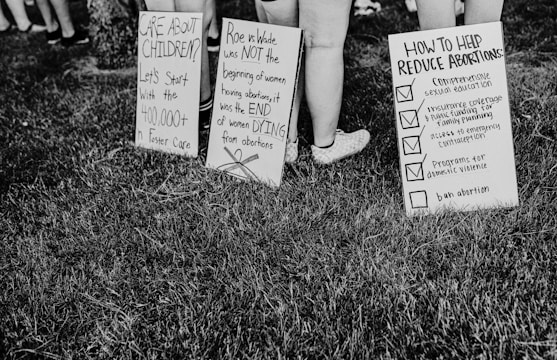 CARE ABOUT
CHILDREN?
Let's Start
With the
400,000+
in Foster Care
Roe vs Wade
was NOT the
beginning of women
having abortions, it
was the END
of women DYING
from abortions
HOW TO HELP
REDUCE ABORTIONS:
Comprehensive
sexual education
insurance coverage
& public funding for
family planning
access to emergency
contraception
Programs for
domestic violence
ban abortion